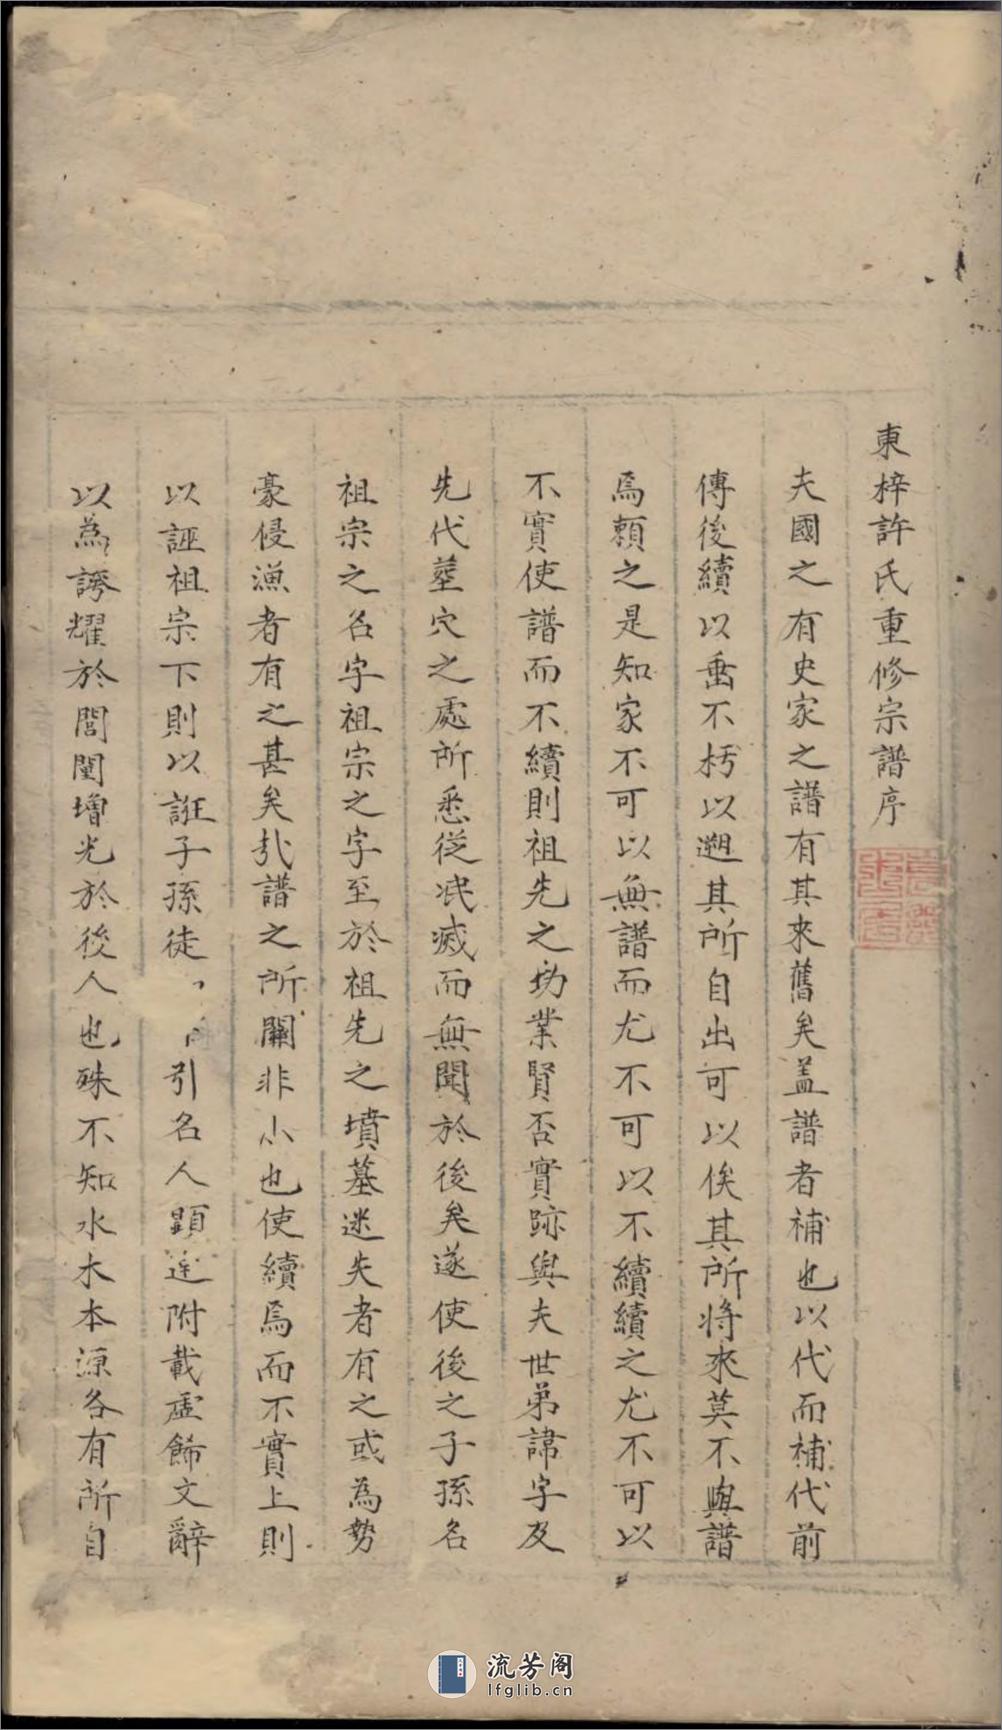 東梓許氏重修宗譜序
夫國之有史家之譜有其來舊矣盖譜者補也以代而補代前
傳後續以垂不朽以遡其所自出可以俟其所将來莫不與譜
焉頼之是知家不可以無譜而尤不可以不續續之尤不可以
不實使譜而不續則祖先之功業賢否實跡與夫世弟諱字及
先代塟穴之處所悉從泯滅而無聞於後矣遂使後之子孫名
祖宗之名字祖宗之字至於祖先之墳墓迷失者有之或為勢
豪侵漁者有之甚矣哉譜之所關非小也使續焉而不實上則
以誣祖宗下則以誑子孫徒引名人顕迹附載虚餙文辭
以為誇耀於閭閈增光於後人也殊不知水木本源各有所自
流芳阁
lfglib.cn